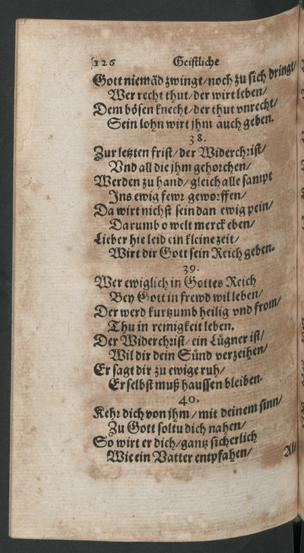 126 Geistliche
Gott niemād zwingt/noch zu sich dringt/
Wer recht thut/der wirt leben/
Dem bösen knecht/der thut vnrecht/
Sein lohn wirt jhm auch geben.
38.
Zur letzten frist/der Widerchrist/
Vnd all die jhm gehorchen/
Werden zu hand/gleich alle sampt
Ins ewig fewr geworffen/
Da wirt nichst sein dan ewig pein/
Darumb o welt merck eben/
Lieber hie leid ein kleine zeit/
Wirt dir Gott sein Reich geben.
39.
Wer ewiglich in Gottes Reich
Bey Gott in frewd wil leben/
Der werd kurtzumb heilig vnd from/
Thu in reinigkeit leben.
Der Widerchrist/ein Lügner ist/
Wil dir dein Sünd verzeihen/
Er sagt dir zu ewige ruh/
Er selbst muß haussen bleiben.
40.
Kehr dich von jhm/mit deinem sinn/
Zu Gott soltu dich nahen/
So wirt er dich/gantz sicherlich
Wie ein Vatter entpfahen/